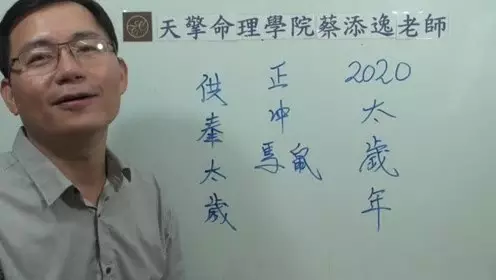 天擎命理學院蔡添逸老師
2020太歲年
正冲鼠
馬
供奉太歲